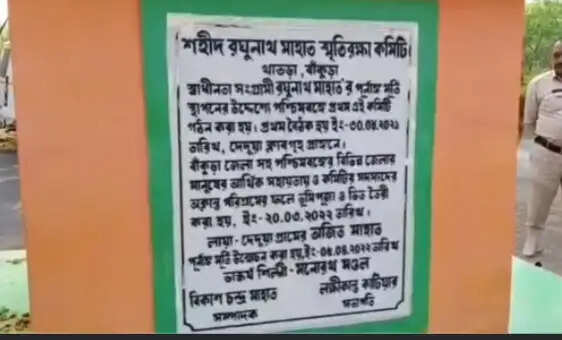 শহীদ রঘুনাথ মাহাত স্মৃতিরক্ষা কমিটি।
খাতড়া, বাঁকুড়া
স্বাধীনতা সংগ্রামী রঘুনাথ মাহাত'র পূর্নাঙ্গ মূর্তি
স্থাপনের উদ্দেশ্যে পশ্চিমবঙ্গে প্রথম এই কমিটি
গঠন করা হয়। প্রথম বৈঠক হয় ইং-৩০.০৪.২০২১
তারিখ, দেদুয়া ক্লাবগৃহ প্রাঙ্গনে।
বাঁকুড়া জেলা সহ পশ্চিমবঙ্গের বিভিন্ন জেলার
মানুষের আর্থিক সহায়তায় ও কমিটির সদস্যদের
অক্লান্ত পরিশ্রমের ফলে ভূমিপূজা ও ভিত তৈরী
করা হয়, ইং-২০.০৩.২০২২ তারিখ।
লায়া-দেদুয়া গ্রামের অজিত মাহাত
পূর্নাঙ্গ মূর্তি উন্মোচন করা হয়, ইং-০৪.০৪.২০২২ তারিখ
ভাস্কর্য শিল্পী-মনোরথ মণ্ডল
বিকাশ চন্দ্র মাহাত
সম্পাদক
লক্ষীকান্ত কাটিয়ার
সভাপতি